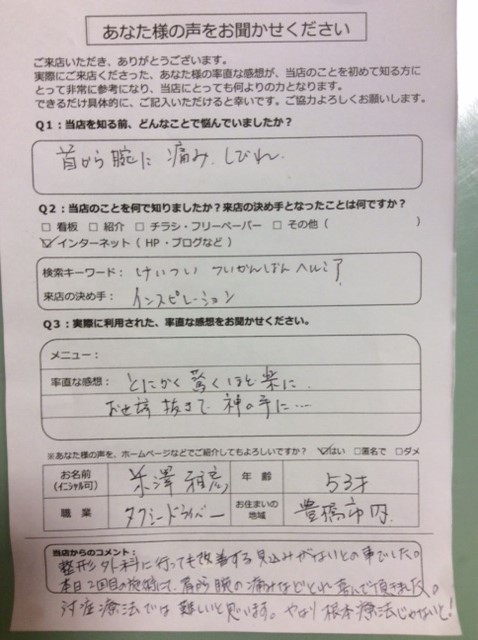 あなた様の声をお聞かせください
ご来店いただき、ありがとうございます。
実際にご来店くださった、あなた様の率直な感想が、当店のことを初めて知る方に
とって非常に参考になり、当店にとっても何よりの力となります。
できるだけ具体的に、ご記入いただけると幸いです。ご協力よろしくお願いします。
Q1：当店を知る前、どんなことで悩んでいましたか？
首から腕に 痛み、しびれ、
Q2：当店のことを何で知りましたか？来店の決め手となったことは何ですか？
□ 看板 □ 紹介 □ チラシ・フリーペーパー □ その他（ ）
☑ インターネット（ HP・ブログなど ）
検索キーワード： けいつい ついかんばん ヘルニア
来店の決め手： インスピレーション
Q3：実際に利用された、率直な感想をお聞かせください。
メニュー：
率直な感想： とにかく 驚くほど 楽に、
お世辞 抜きで 神の手に…
※あなた様の声を、ホームページなどでご紹介してもよろしいですか？ ☑はい □匿名で □ダメ
お名前 米澤 雅彦 年 齢 53才
（イニシャル可）
職 業 タクシードライバー お住まいの地域 豊橋市内
当店からのコメント：
整形外科に行っても改善する見込みがないとの事でした。
本日2回目の施術にて、肩 腕の痛みはとれ喜んで頂きました。
対症療法では難しいと思います。やはり根本療法じゃないと！